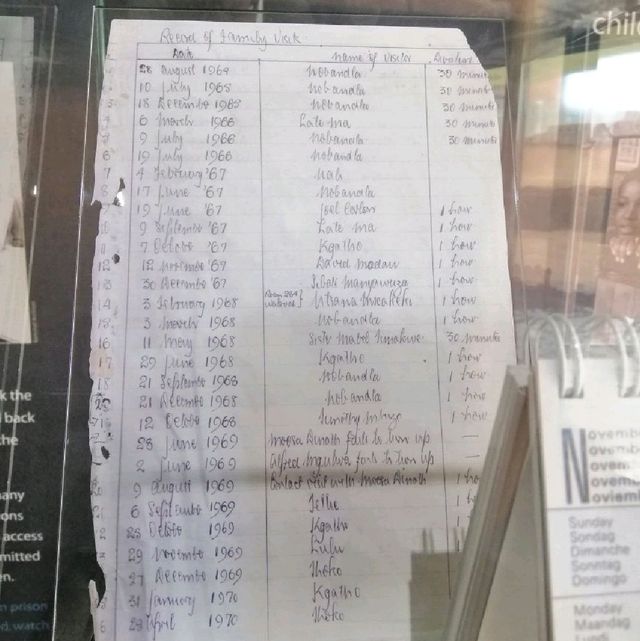 child
Record of Family Visits
Date Name of Visitor Duration
28 August 1964 Nobandla 30 minute
10 July 1965 Nobandla 30 minute
18 December 1965 Nobandla 30 minute
6 March 1966 Late Ma 30 minute
9 July 1966 Nobandla 30 minute
6 19 July 1966 Nobandla
7 4 February '67 Nali
8 17 June '67 Nobandla
9 19 June '67 Joel Carlson 1 hour
9 September '67 Late Ma 1 hour
7 October '67 Kgatho 1 hour
12 12 November '67 David 1 hour
13 30 December '67 1 hour
14 3 February 1968 1 hour
3 March 1968 Nobandla 1 hour
16 11 May 1968 Sister Mabel 30 minute
17 29 June 1968 Kgatho 1 hour
18 21 September 1968 Nobandla 1 hour
21 December 1968 Nobandla 1 hour
12 October 1968 Timothy Mbuzo 1 hour
28 June 1969 Moosa Dinath fails to turn up —
2 June 1969 Alfred Mgulwa fails to turn up —
9 August 1969 Contact visit with Moosa Dinath 1 ho
6 September 1969 1
25 October 1969 Kgatho 1
29 November 1969 Lulu
27 December 1969 Thoko
31 January 1970 Kgatho
29 April 1970 Thoko
k the
back
the
any
ons
access
mitted
en.
n prison
d, watch
Novemb
Novembe
Novem
Novemb
Noviem
Sunday
Sondag
Dimanche
Sonntag
Domingo
Monday
Maandag
Lundi